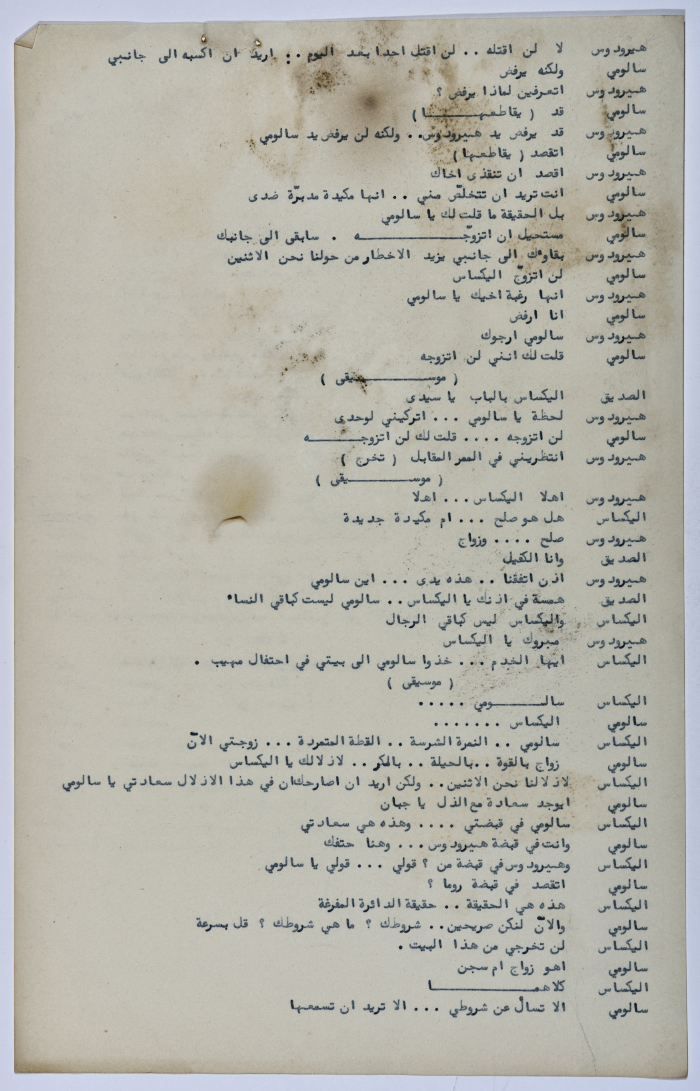 هيرودوس لا لن اقتله .. لن اقتل احدا بعد اليوم .. اريد ان اكسبه الى جانبي
سالومي ولكنه يرفض
هيرودوس اتعرفين لماذا يرفض ؟
سالومي قد ( يقاطعهـــــــا )
هيرودوس قد يرفض يد هيرودوس.. ولكنه لن يرفض يد سالومي
سالومي اتقصد ( يقاطعها )
هيرودوس اقصد ان تنقذى اخاك
سالومي انت تريد ان تتخلّص مني .. انها مكيدة مدبرّة ضدى
هيرودوس بل الحقيقة ما قلت لك يا سالومي
سالومي مستحيل ان اتزوّجـــــــــــه . سابقى الى جانبك
هيرودوس بقاوءك الى جانبي يزيد الاخطار من حولنا نحن الاثنين
سالومي لن اتزوّج اليكساس
هيرودوس انها رغبة اخيك يا سالومي
سالومي انا ارفض
هيرودوس سالومي ارجوك
سالومي قلت لك انني لن اتزوجه
( موســـــــــيقى )
الصديق اليكساس بالباب يا سيدى
هيرودوس لحظة يا سالومي ... اتركيني لوحدى
سالومي لن اتزوجه .... قلت لك لن اتزوجـــــــه
هيرودوس انتظريني في الممر المقابل ( تخرج )
( موســـــــــيقى )
هيرودوس اهلا اليكساس ... اهلا
اليكساس هل هو صلح ... ام مكيدة جديدة
هيرودوس صلح .... وزواج
الصديق وانا الكفيل
هيرودوس اذن اتفقنا .. هذه يدى ... اين سالومي
الصديق همسة في اذنك يا اليكساس .. سالومي ليست كباقي النساء
اليكساس واليكساس ليس كباقي الرجال
هيرودوس مبروك يا اليكساس
اليكساس ايها الخدم ... خذوا سالومي الى بيتي في احتفال مهيب .
( موسيقى )
اليكساس سالـــــــومي .....
سالومي اليكساس .......
اليكساس سالومي .. النمرة الشرسة .. القطة المتمردة ... زوجتي الآن
سالومي زواج بالقوة .. بالحيلة .. بالمكر .. لاذلالك يا اليكساس
اليكساس لاذلالنا نحن الاثنين .. ولكن اريد ان اصارحك ان في هذا الاذلال سعادتي يا سالومي
سالومي ايوجد سعادة مع الذل يا جبان
اليكساس سالومي في قبضتي .... وهذه هي سعادتي
سالومي وانت في قبضة هيرودوس ... وهنا حتفك
اليكساس وهيرودوس في قبضة من ؟ قولي ... قولي يا سالومي
سالومي اتقصد في قبضة روما ؟
اليكساس هذه هي الحقيقة .. حقيقة الدائرة المفرغة
سالومي والآن لنكن صريحين .. شروطك ؟ ما هي شروطك ؟ قل بسرعة
اليكساس لن تخرجي من هذا البيت .
سالومي اهو زواج ام سجن
اليكساس كلاهمــــــــــا
سالومي الا تسأل عن شروطي ... الا تريد ان تسمعها